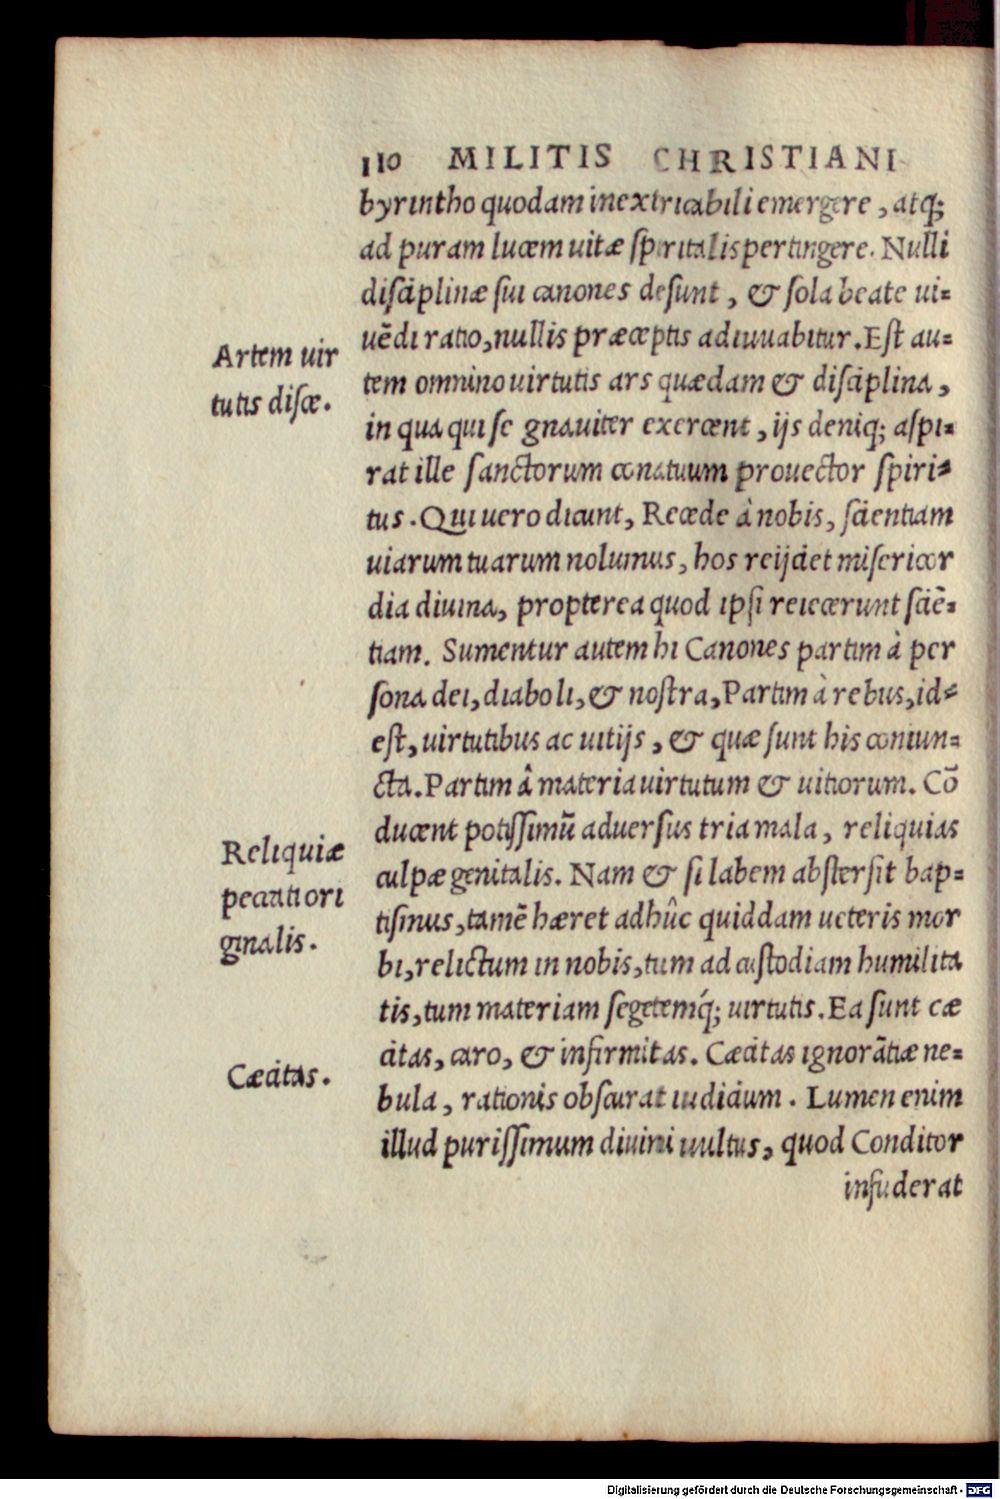 110 MILITIS CHRISTIANI
byrintho quodam inextricabili emergere, atq;
ad puram lucem uitæ spiritalis pertingere. Nulli
disciplinæ sui canones desunt, & sola beate ui=
uẽdi ratio, nullis præceptis adiuuabitur. Est au=
Artem uir
tutis disce.
tem omnino uirtutis ars quædam & disciplina,
in qua qui se gnauiter exercent, ijs deniq; aspi=
rat ille sanctorum conatuum prouector spiri=
tus. Qui uero dicunt, Recede à nobis, scientiam
uiarum tuarum nolumus, hos reijciet misericor
dia diuina, propterea quod ipsi reiecerunt sciẽ=
tiam. Sumentur autem hi Canones partim à per
sona dei, diaboli, & nostra, Partim à rebus, id=
est, uirtutibus ac uitijs, & quæ sunt his coniun=
cta. Partim â materia uirtutum & uitiorum. Cõ
ducent potissimũ aduersus tria mala, reliquias
Reliquiæ
peccati ori
ginalis.
culpæ genitalis. Nam & si labem abstersit bap=
tismus, tamẽ hæret adhûc quiddam ueteris mor
bi, relictum in nobis, tum ad custodiam humilita
tis, tum materiam segetemq́; uirtutis. Ea sunt cæ
citas, caro, & infirmitas. Cæcitas ignorãtiæ ne=
Cæcitas.
bula, rationis obscurat iudicium. Lumen enim
illud purissimum diuini uultus, quod Conditor
infuderat
Digitalisierung gefördert durch die Deutsche Forschungsgemeinschaft - DFG